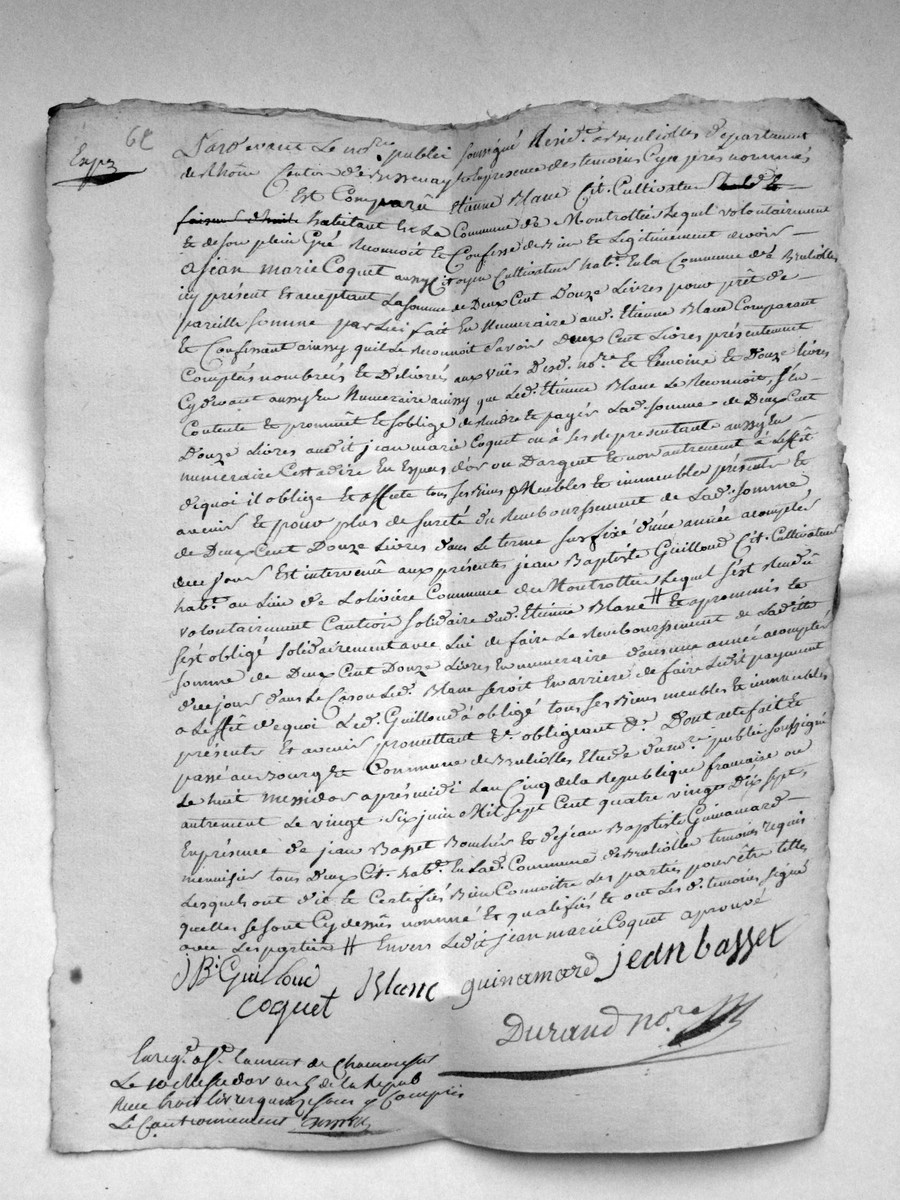 62
Expé
Pardevant Le no.re public soussigné Resid.t a Brullioles departement
du Rhône Canton de Bessenay et en presence des temoins Cy a près nommés
Est Comparû Etienne Blanc Cit. Cultivateur
habitant En La Commune de Montrottier Lequel volontairement
Et de son plein Gré Reconnoit et Confesse de Bien Et Legitimement devoir
a jean marie Coquet aussy Citoyen Cultivateur hab.t En la Commune de Brullioles
icy présent Et acceptant La somme de Deux Cent Douze Livres pour prêt de
pareille somme par Lui fait En Numeraire aud. Etienne Blanc Comparant
Et Confessant ainssy quil Le Reconnoit d'avoir Deux Cent Livres présentement
Comptés nombreés Et Délivrés aux vües dud. no.re Et temoins Et Douze livres
Cydevant aussy En Numeraire ainssy que Led. Etienne Blanc Le Reconnoit, s'En
Contente Et promêt Et soblige de Rendre Et payer Lad. somme de Deux Cent
Douze Livres aud.it jean marie Coquet ou à ses Representants aussy En
numeraire Cest adire En Espèces d'or ou Dargent Et non autrement à Leffêt
dequoi il oblige Et affecte tous ses Biens Meubles Et immeubles présents Et
avenir Et pour plus de sureté du Remboursement de Lad. somme
de Deux Cent Douze Livres dans Le terme sus fixé d'une année acompter
de ce jour Est intervenû aux présentes jean Baptiste Guilloud Cit. Cultivateur
hab.t au Lieu de Lolivière Commune de Montrottier Lequel s'est Rendû
volontairement Caution solidaire dud. Etienne Blanc # Et a prommis Et
s'est obligé solidairement avec Lui de faire Le Remboursement de Ladite
somme de Deux Cent Douze Livres En numeraire dans une année acompter
de ce jour dans Le Cas ou Led. Blanc seroit En arriere de faire Ledit payement
a Leffêt dequoi Led. Guilloud à obligé tous ses Biens meubles Et immeubles
présents Et avenir promettant &. obligeant &. Dont acte fait Et
passé au Bourg Et Commune de Brullioles Etude du no.re public soussigné
Le huit messidor après midi Lan Cinq de la Republique francaise ou
autrement Le vingt six juin Mil Sept Cent quatre vingt dix sept,
En présence de jean Basset Boucher Et de jean Baptiste Guinamard
menuisier tous Deux Cit. hab.t En Lad. Commune de Brullioles temoins requis
Lesquels ont dit Et Certifiés Bien Connoitre Les parties pour être telles
quelles se sont Cy dessûs nommé Et qualifiés Et ont Les d. temoins signé
avec Les parties # Envers Ledit jean marie Coquet aprouvé
J Bt Guilloud Blanc guinamard jean basset
coquet
Durand no.re
Enreg. a St. Laurent de Chamousset
Le 10 Messidor an 5 de la Repub
Reçu trois livres quinze sous y Compris
Le Cautionnement